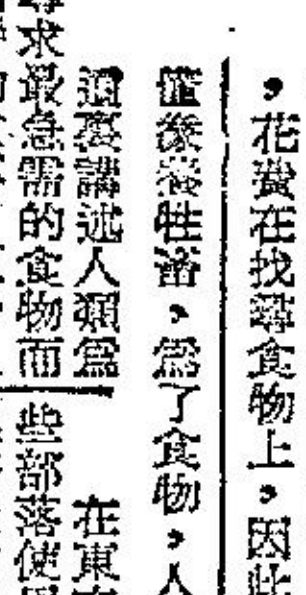 ，花費在找尋食物上，因此
養牲畜，爲了食物，人
這裏講述人類爲
求最急需的食物而
在東
些部落使